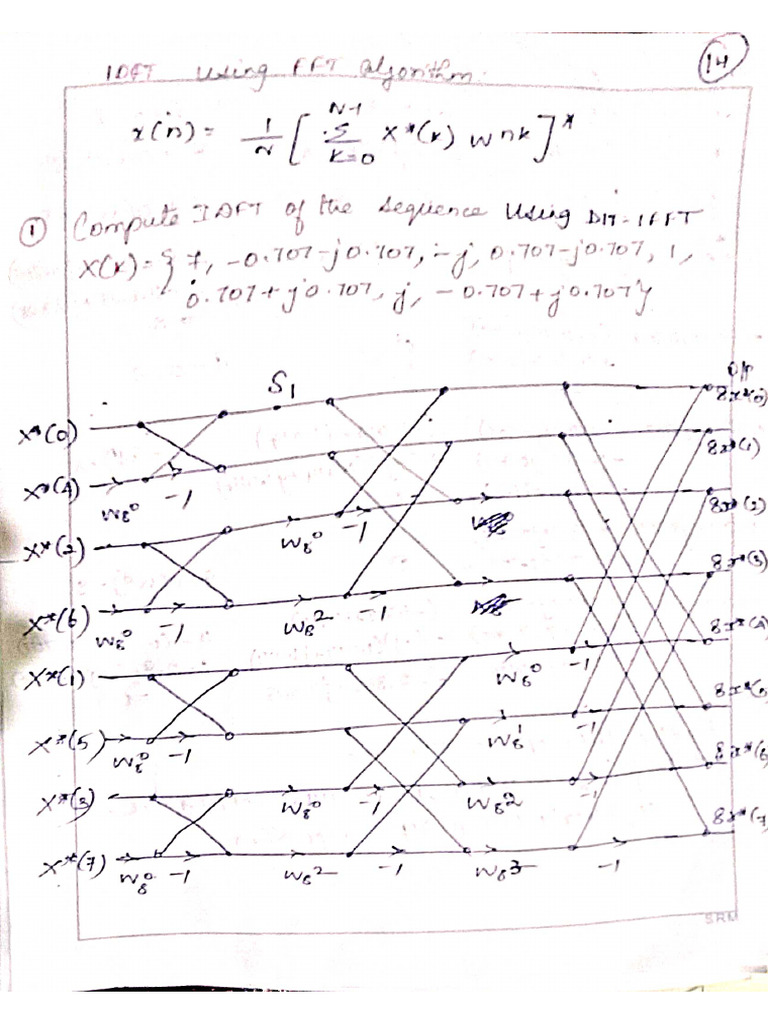 14
IDFT using FFT algorithm.
x(n) = 1/N [ N-1 Σ K=0 X*(k) W^nk ]*
① Compute IDFT of the sequence using DIT-IFFT
X(k) = { 7, -0.707-j0.707, -j, 0.707-j0.707, 1,
0.707+j0.707, j, -0.707+j0.707 }
S1
O/P
X*(0) 8x*(0)
X*(4) W8^0 -1 8x*(1)
X*(2) W8^0 -1 8x*(2)
X*(6) W8^0 -1 W8^2 -1 8x*(3)
X*(1) W8^0 -1 8x*(4)
X*(5) W8^0 -1 W8^1 -1
X*(3) W8^0 -1 W8^2 -1 8x*(6
X*(7) W8^0 -1 W8^2 -1 W8^3 -1 8x*(7
SRM